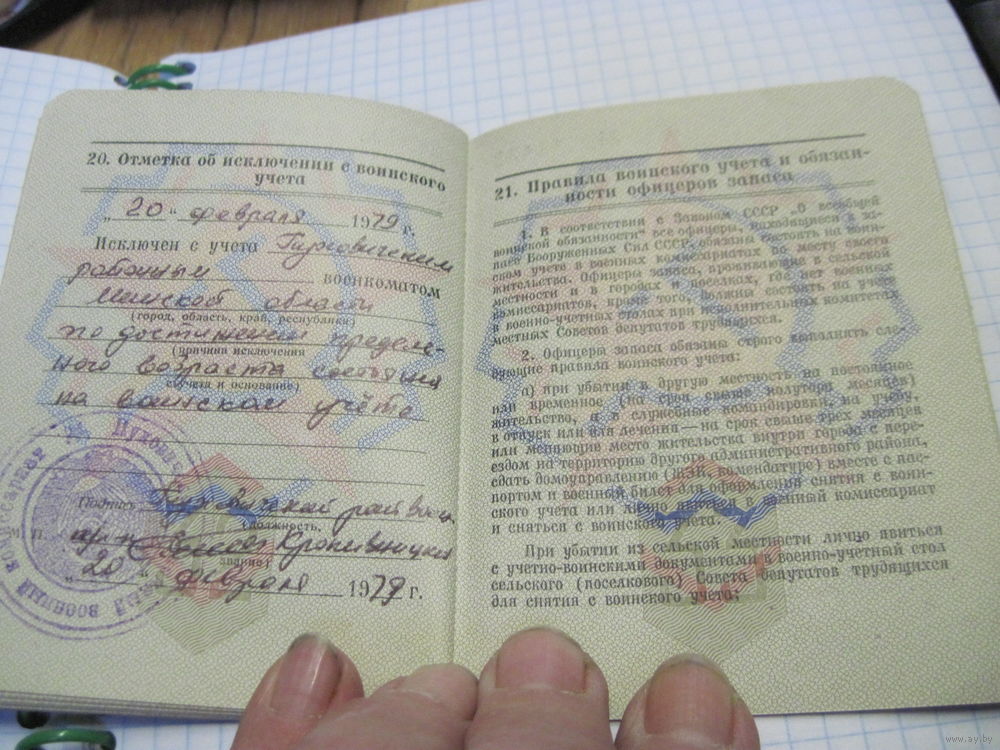 20. Отметка об исключении с воинского
учета
„ 20 “ февраля 1979 г.
Исключен с учета Пуховичским
районным военкоматом
Минской области
(город, область, край, республика)
по достижении предель-
(причина исключения
ного возраста состояния
с учета и основание)
на воинском учёте
Подпись Пуховичский райвоен
(должность,
Кропивницкий
звание)
„ 20 “ февраля 1979 г.
М. П.
21. Правила воинского учета и обязан-
ности офицеров запаса
1. В соответствии с Законом СССР „О всеобщей
воинской обязанности“ все офицеры, находящиеся в за-
пасе Вооруженных Сил СССР, обязаны состоять на воин-
ском учете в военных комиссариатах по месту своего
жительства. Офицеры запаса, проживающие в сельской
местности и в городах и поселках, где нет военных
комиссариатов, кроме того, должны состоять на учете
в военно-учетных столах при исполнительных комитетах
местных Советов депутатов трудящихся.
2. Офицеры запаса обязаны строго выполнять сле-
дующие правила воинского учета:
а) при убытии в другую местность на постоянное
или временное (на срок свыше полутора месяцев)
жительство, а в служебные командировки, на учебу,
в отпуск или для лечения — на срок свыше трех месяцев
или меняющие место жительства внутри города с пере-
ездом на территорию другого административного района,
сдать домоуправлению (ЖЭК, комендатуре) вместе с пас-
портом и военный билет для оформления снятия с воин-
ского учета или лично явиться в военный комиссариат
и сняться с воинского учета.
При убытии из сельской местности лично явиться
с учетно-воинскими документами в военно-учетный стол
сельского (поселкового) Совета депутатов трудящихся
для снятия с воинского учета;
www.ay.by